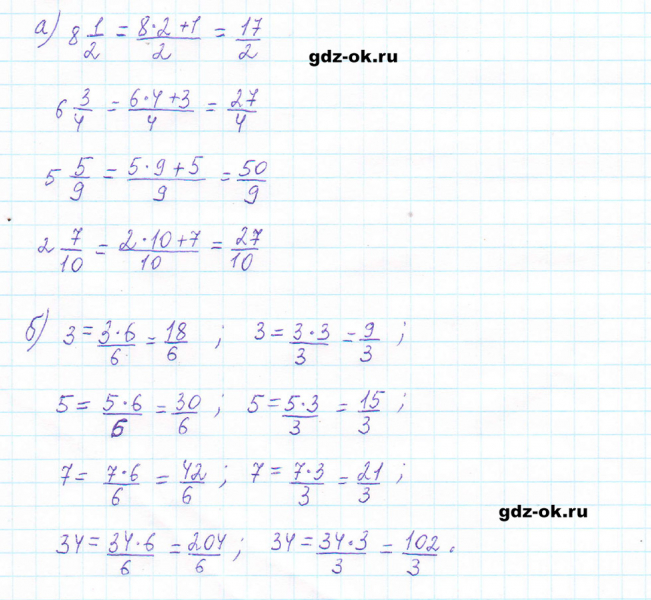 а) 8 1/2 = (8·2+1)/2 = 17/2
gdz-ok.ru
6 3/4 = (6·4+3)/4 = 27/4
5 5/9 = (5·9+5)/9 = 50/9
2 7/10 = (2·10+7)/10 = 27/10
б) 3 = (3·6)/6 = 18/6 ; 3 = (3·3)/3 = 9/3 ;
5 = (5·6)/6 = 30/6 ; 5 = (5·3)/3 = 15/3 ;
7 = (7·6)/6 = 42/6 ; 7 = (7·3)/3 = 21/3 ;
gdz-ok.ru
34 = (34·6)/6 = 204/6 ; 34 = (34·3)/3 = 102/3 .